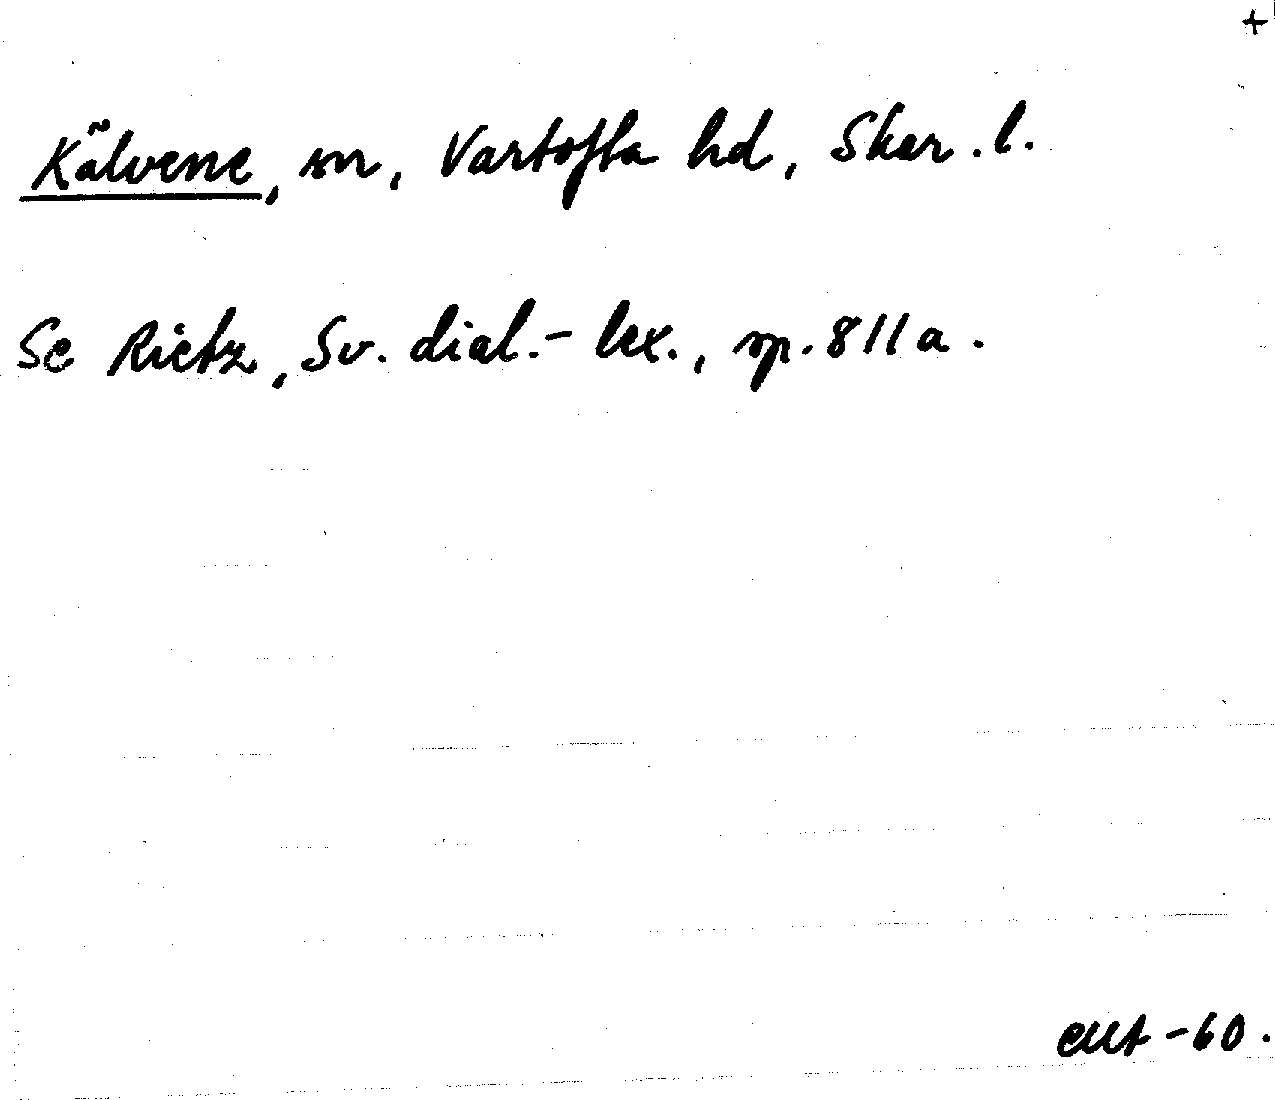 +
Kälvene, sn, Vartofta hd, Skar. l.
Se Rietz, Sv. dial.-lex., sp. 811a.
-60.